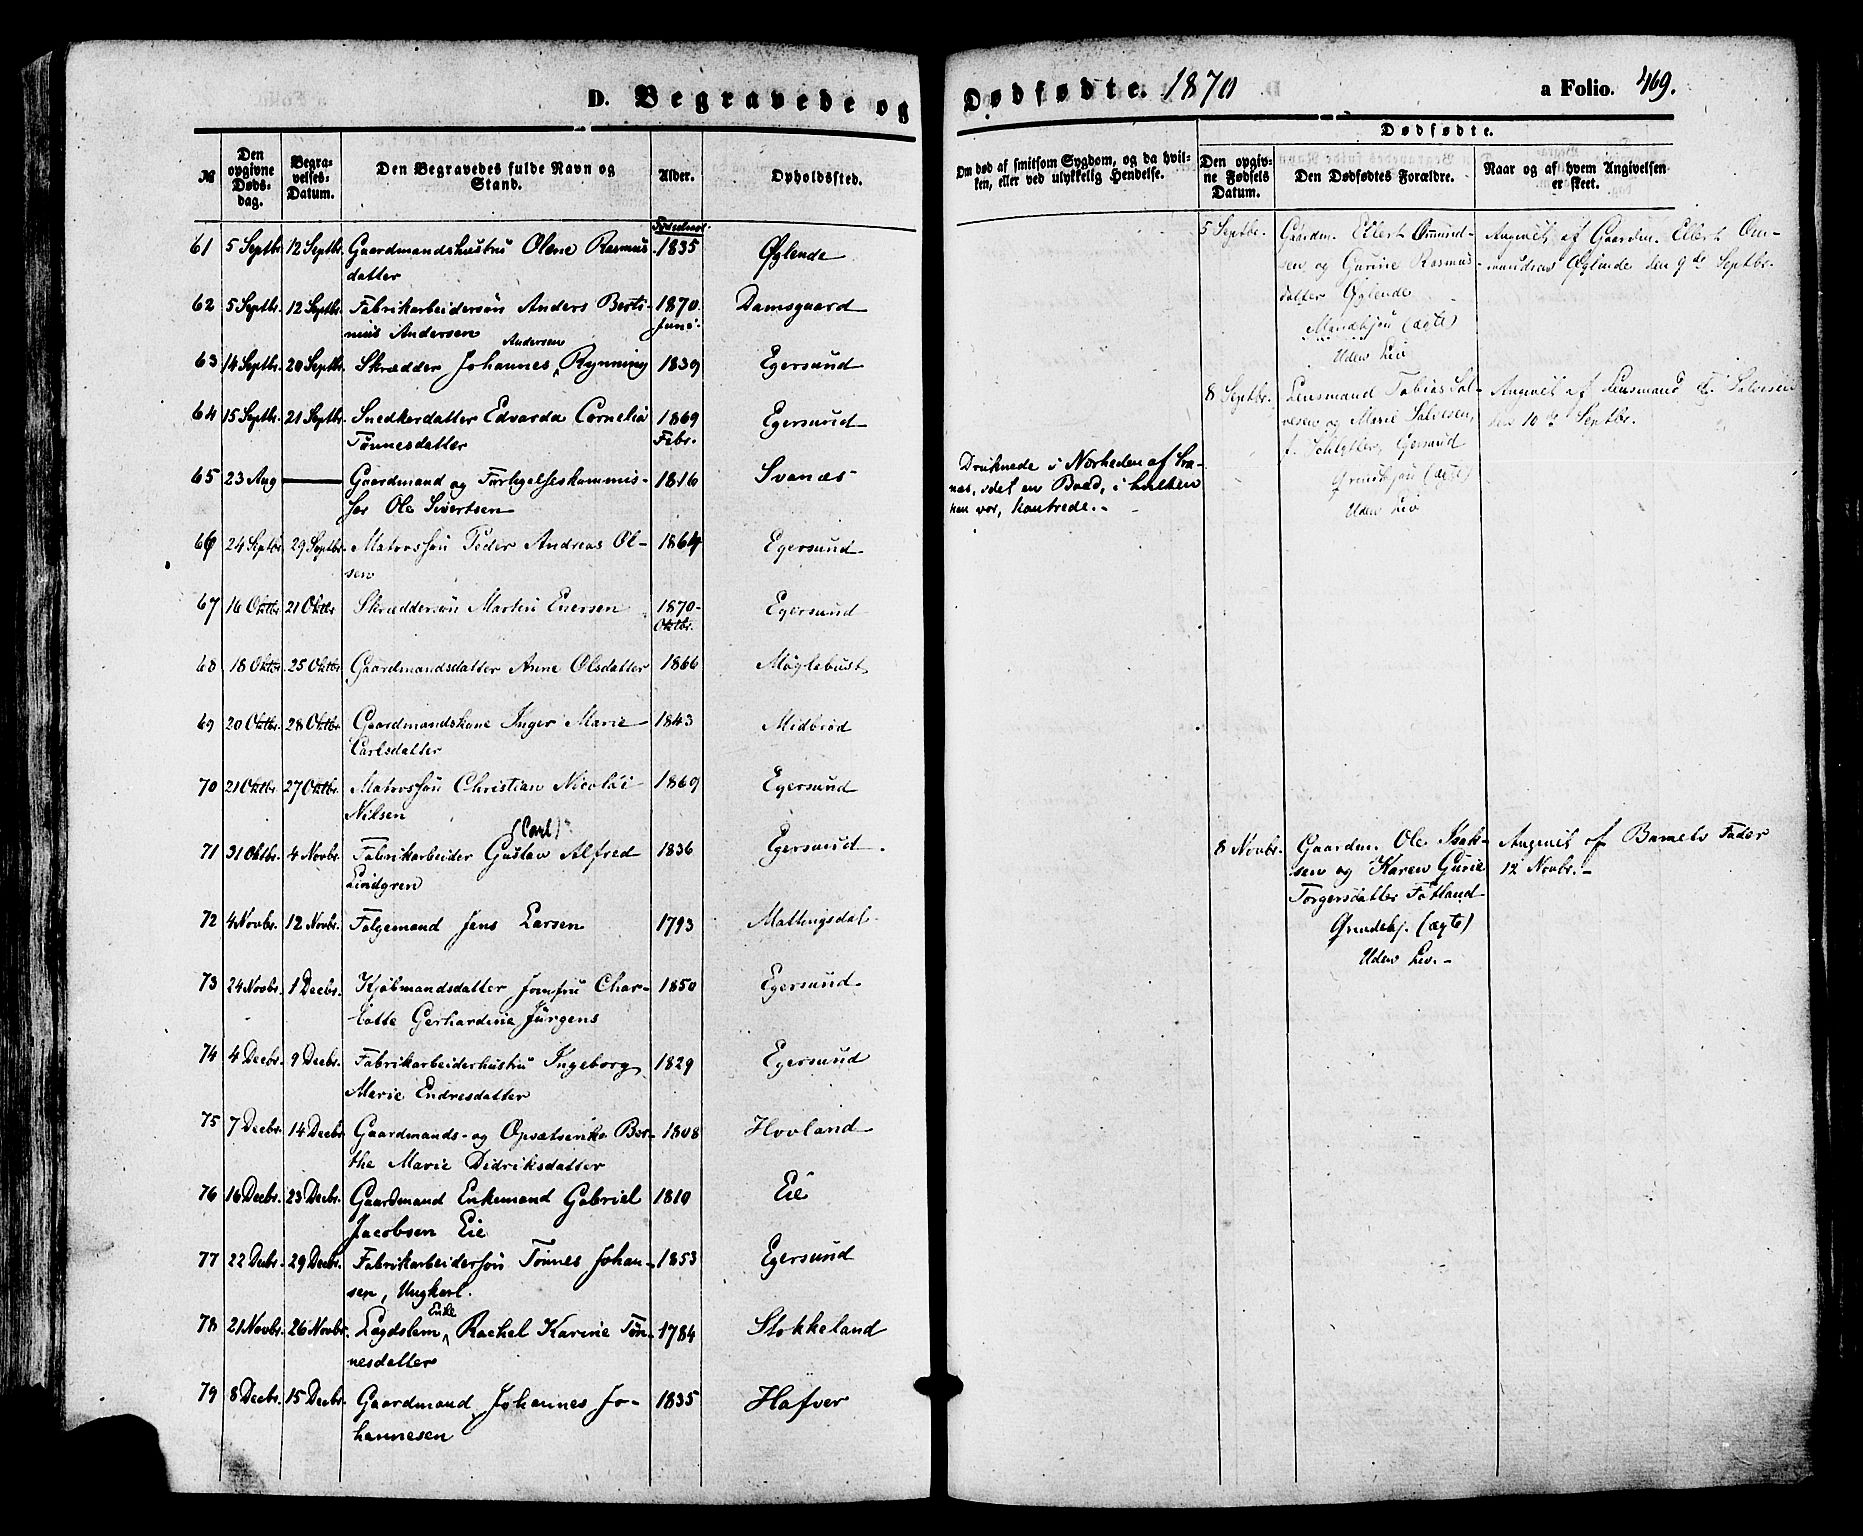 D. Begravede og Dødfødte. 1870 a Folio. 469.
№ Den opgivne Dødsdag. Begravelses-Datum. Den Begravedes fulde Navn og Stand. Alder. Opholdssted.
61 5 Septbr. 12 Septbr. Gaardmandshustru Olene Rasmus- 1835 Øglende
datter
62 5 Septbr. 12 Septbr. Fabrikarbeidersøn Anders Berti- 1870 Damsgaard
nius Andersen Juni.
63 14 Septbr. 20 Septbr. Skrædder Johannes Andersen Rynning 1839 Egersund
64 15 Septbr. 21 Septbr. Snedkerdatter Edvarda Cornelia 1869 Egersund
Tønnesdatter Febr.
65 23 Aug — Gaardmand og Forligelseskommis- 1816 Svanæs
sær Ole Sivertsen
66 24 Septbr. 29 Septbr. Matrossøn Peder Andreas Ol- 1864 Egersund
sen
67 16 Oktbr. 21 Oktbr. Skræddersøn Martin Enersen 1870 Egersund
Oktbr.
68 18 Oktbr. 25 Oktbr. Gaardmandsdatter Anne Olsdatter 1866 Møglebust
69 20 Oktbr. 28 Oktbr. Gaardmandskone Inger Marie 1843 Midbrød
Carlsdatter
70 21 Oktbr. 27 Oktbr. Matrossøn Christian Nicolai 1869 Egersund
Nilsen
(Carl)
71 31 Oktbr. 4 Novbr. Fabrikarbeider Gustav Alfred 1836 Egersund.
Lindgren
72 4 Novbr. 12 Novbr. Følgemand Jens Larsen 1793 Mattingsdal
73 24 Novbr. 1 Decbr. Kjøbmandsdatter Jomfru Char- 1850 Egersund
lotte Gerhardine Jürgens
74 4 Decbr. 9 Decbr. Fabrikarbeiderhustru Ingeborg 1829 Egersund
Marie Endresdatter
75 7 Decbr. 14 Decbr. Gaardmands- og Ber- 1808 Hovland
the Marie Didriksdatter
76 16 Decbr. 23 Decbr. Gaardmand Enkemand Gabriel 1810 Eie
Jacobsen Eie
77 22 Decbr. 29 Decbr. Fabrikarbeidersøn Tønnes Johan- 1853 Egersund
sen, Ungkarl.
78 21 Novbr. 26 Novbr. Lægdslem Enke Rachel Karine Tøn- 1784 Stokkeland
nesdatter
79 8 Decbr. 15 Decbr. Gaardmand Johannes Jo- 1835 Hafver
hannesen
Om død af smitsom Sygdom, og da hvil-
ken, eller ved ulykkelig Hendelse.
Druknede i Nærheden af Sva-
næs, idet en Baad, i hvilken
han var, kantrede.-
Dødfødte.
Den opgiv-
ne Fødsels
Datum.
Den Dødfødtes Forældre.
Naar og af hvem Angivelsen
er skeet.
5 Septbr. Gaardm. Ellert Omund- Angivet af Gaardm. Ellert Om-
sen og Gurine Rasmus- mundsen Øglende den 9de Septbr.
datter Øglende
Mandkjøn (ægte)
Uden Liv
8 Septbr. Lensmand Tobias Sal- Angivet af Lensmand T. Salvesen
vesen og Marie Salvesen, den 10de Septbr.
f. Egersund
Qvindkjøn (ægte)
Uden Liv
8 Novbr. Gaardm. Ole Isak- Angivet af Barnets Fader
sen og Karen Gurie 12 Novbr.-
Torgersdatter Fotland
Qvindekj. (ægte)
Uden Liv.-